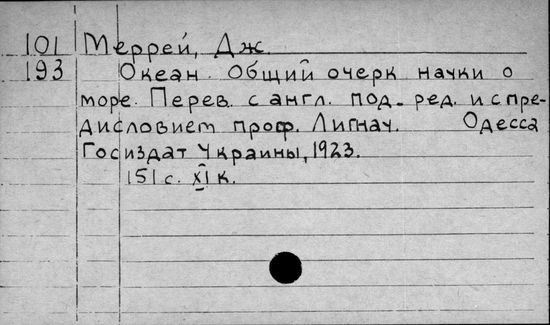 101 Меррей, Дж.
193 Океан. Общий очерк науки о
море. Перев. с англ. под. ред. и с пре-
дисловием проф. Лигнач. Одесса
Госиздат Украины, 1923.
151 с. XI к.